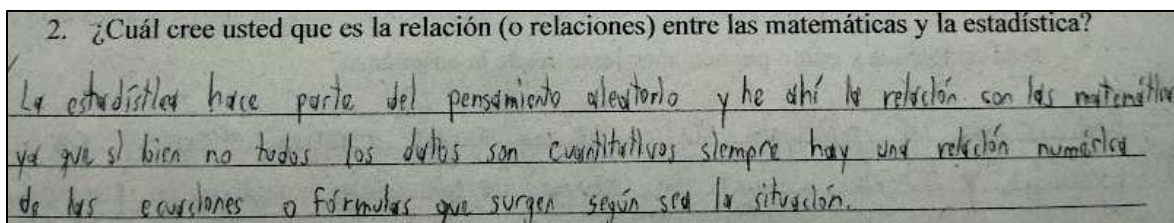 2. ¿Cuál cree usted que es la relación (o relaciones) entre las matemáticas y la estadística?
La estadística hace parte del pensamiento aleatorio y he ahí la relación con las matemáticas
ya que si bien no todos los datos son cuantitativos siempre hay una relación numérica
de las ecuaciones o fórmulas que surgen según sea la situación.